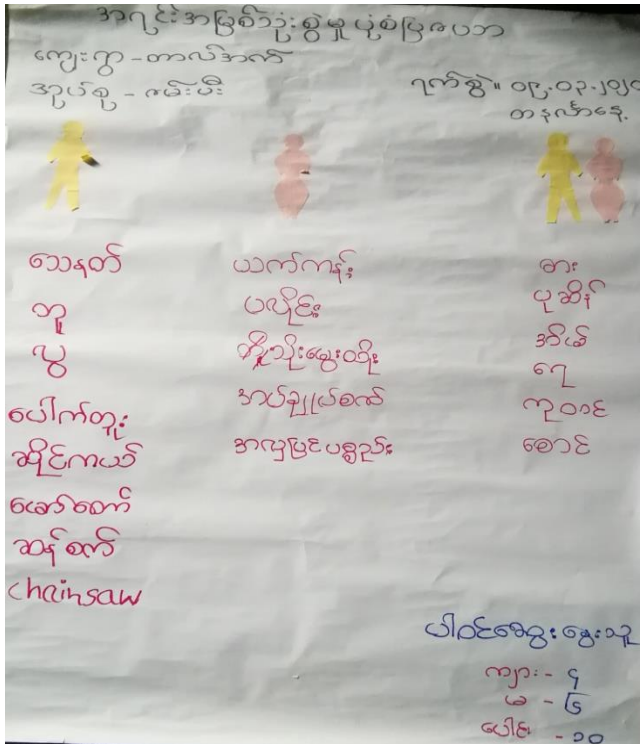 အရင်းအမြစ်သုံးစွဲမှုပုံစံပြဇယား
ကျေးရွာ - တာလ်အက်
အုပ်စု - ဇမ်းပီး
ရက်စွဲ။ ၀၉.၀၃.၂၀၂၀
တနင်္လာနေ့
သေနတ်
တူ
လွှ
ပေါက်တူး
ဆိုင်ကယ်
မော်တော်
ဆန်စက်
chainsaw
ယက်ကန်း
ပလိုင်း
အပ်ချုပ်စက်
အလှပြင်ပစ္စည်း
ဓား
ပုဆိန်
အိမ်
ရေ
ကုတင်
စောင်
ပါဝင်ဆွေးနွေးသူ
ကျား - ၄
မ - ၆
ပေါင်း - ၁၀